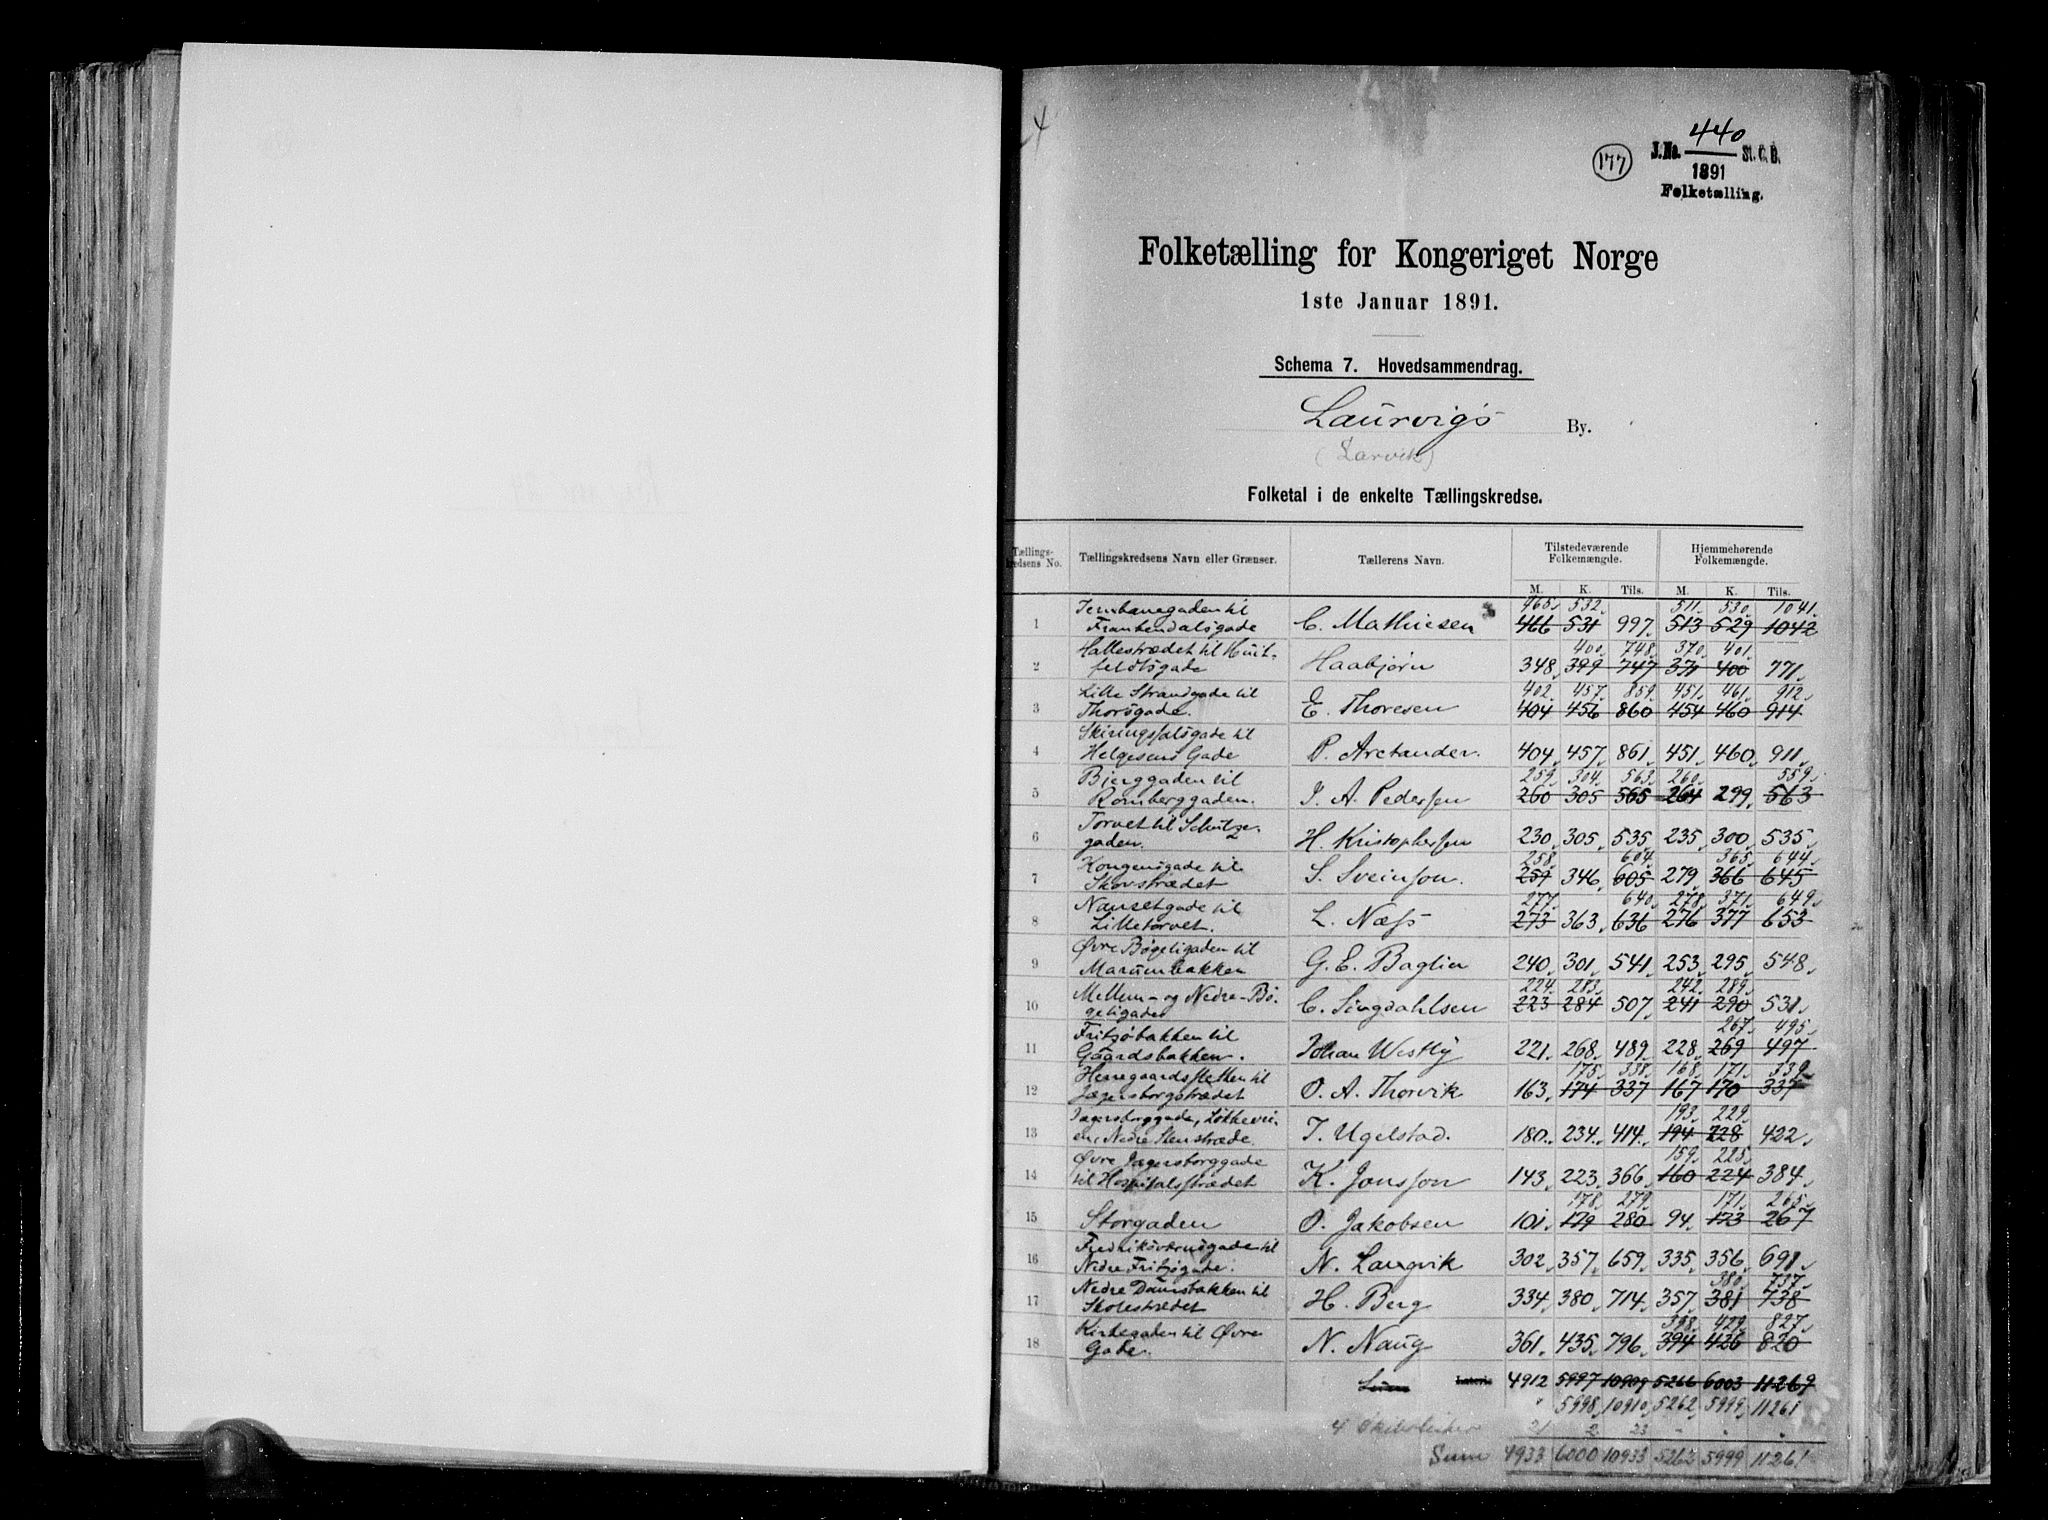 440
177
J.No. St. C. B.
1891
Folketælling.
Folketælling for Kongeriget Norge
1ste Januar 1891.
Schema 7. Hovedsammendrag.
Laurvigs By.
(Larvik)
Folketal i de enkelte Tællingskredse.
Tællings- Tællingskredsens Navn eller Grænser. Tællerens Navn. Tilstedeværende Folkemængde. Hjemmehørende Folkemængde.
kredsens No. M. K. Tils. M. K. Tils.
465 532 511 530 1041
Jernbanegaden til
1 Frankendalsgade C. Mathiesen 466 531 997 513 529 1042
Hallestrædet til Huit- 400 748 370 401
2 feldtsgade Haabjørn 348 399 747 371 400 771
Lille Strandgade til 402 457 859 451 461 912
3 Thorsgade. E. Thoresen 404 456 860 454 460 914
Skiringssalsgade til
4 Helgesens Gade P. Arctander. 404 457 861 451 460 911
Bjerggaden til 259 304 563 260 559
5 Romberggaden. J. A. Pedersen 260 305 565 264 299 563
Torvet til Schultze-
6 gaden. H. Kristophersen 230 305 535 235 300 535
Kongensgade til 258 604 365 644
7 Skovstrædet S. Sveinson. 259 346 605 279 366 645
Nansetgade til 277 640 278 371 649
8 Lilletorvet. L. Næss 273 363 636 276 377 653
Øvre Bøgeligaden til
9 Marumbakken G. E. Baglin 240 301 541 253 295 548
Mellem- og Nedre-Bø- 224 283 242 289
10 geligaden C. Singdahlsen 223 284 507 241 290 531
Fritzøbakken til 267 495
11 Gaardsbakken. Johan Westby 221 268 489 228 269 497
Herregaardssletten til 175 338 168 171 339
12 Jægersborgstrædet O. A. Thorvik 163 174 337 167 170 337
Jægersborggade, Løkkevei- 193 229
13 en, Nedre Stenstræde. J. Ugelstad. 180 234 414 194 228 422
Øvre Jægersborggade 159 225
14 til Hospitalsstrædet K. Jonsson 143 223 366 160 224 384
178 279 171 265
15 Storgaden O. Jakobsen 101 179 280 94 173 267
Fredriksværnsgade til
16 Nedre Fritzøgade. N. Langvik 302 357 659 335 356 691
Nedre Damsbakken til 380 737
17 Skolestrædet H. Berg 334 380 714 357 381 738
Kirkegaden til Øvre 398 429 827
18 Gade. N. Naug 361 435 796 394 426 820
Lateris 4912 5997 10909 5266 6003 11269
" 5998 10910 5262 5999 11261
4 Skibslister 21 2 23 - - -
Sum 4933 6000 10933 5262 5999 11261